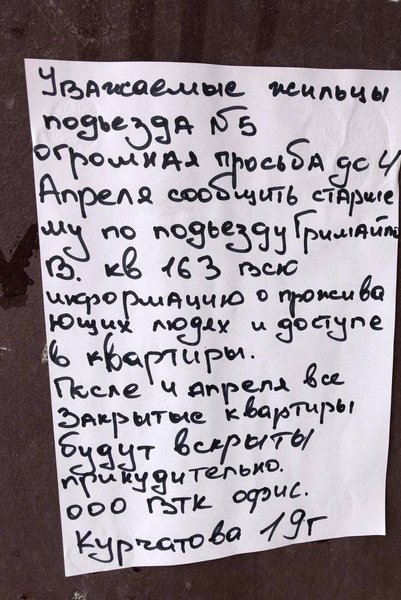 Уважаемые жильцы
подьезда №5
огромная просьба до 4
Апреля сообщить старше
му по подьезду
В. кв 163 всю
информацию о прожива
ющих людях и доступе
в квартиры.
После 4 апреля все
закрытые квартиры
будут вскрыты
прикудительно.
ООО ВТК офис.
Курчатова 19г